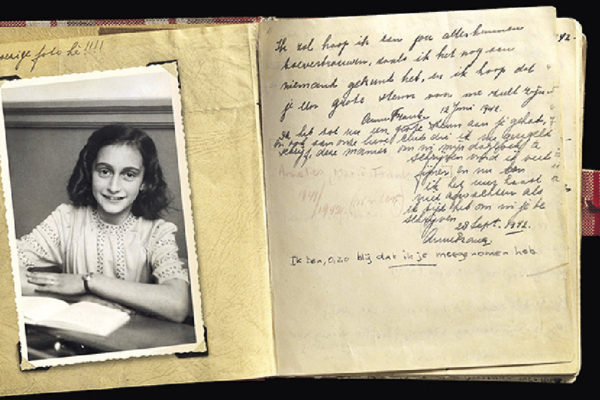 foto hè!!!!
Ik zal hoop ik aan jou alles kunnen
toevertrouwen, zoals ik het nog aan
niemand gekund heb, en ik hoop dat
je een grote steun voor me zult zijn.
Anne Frank. 12 Juni 1942.
Ik heb tot nu toe een grote steun aan je gehad,
en ook aan onze lieve club die ik nu geregeld
schrijf, deze manier om in mijn dagboek te
schrijven vind ik veel
fijner en nu kan
ik het uur haast
niet afwachten als
ik tijd heb om in je te
schrijven.
28 Sept. 1942.
Anne Frank.
Ik ben, o, zo blij dat ik je meegenomen heb